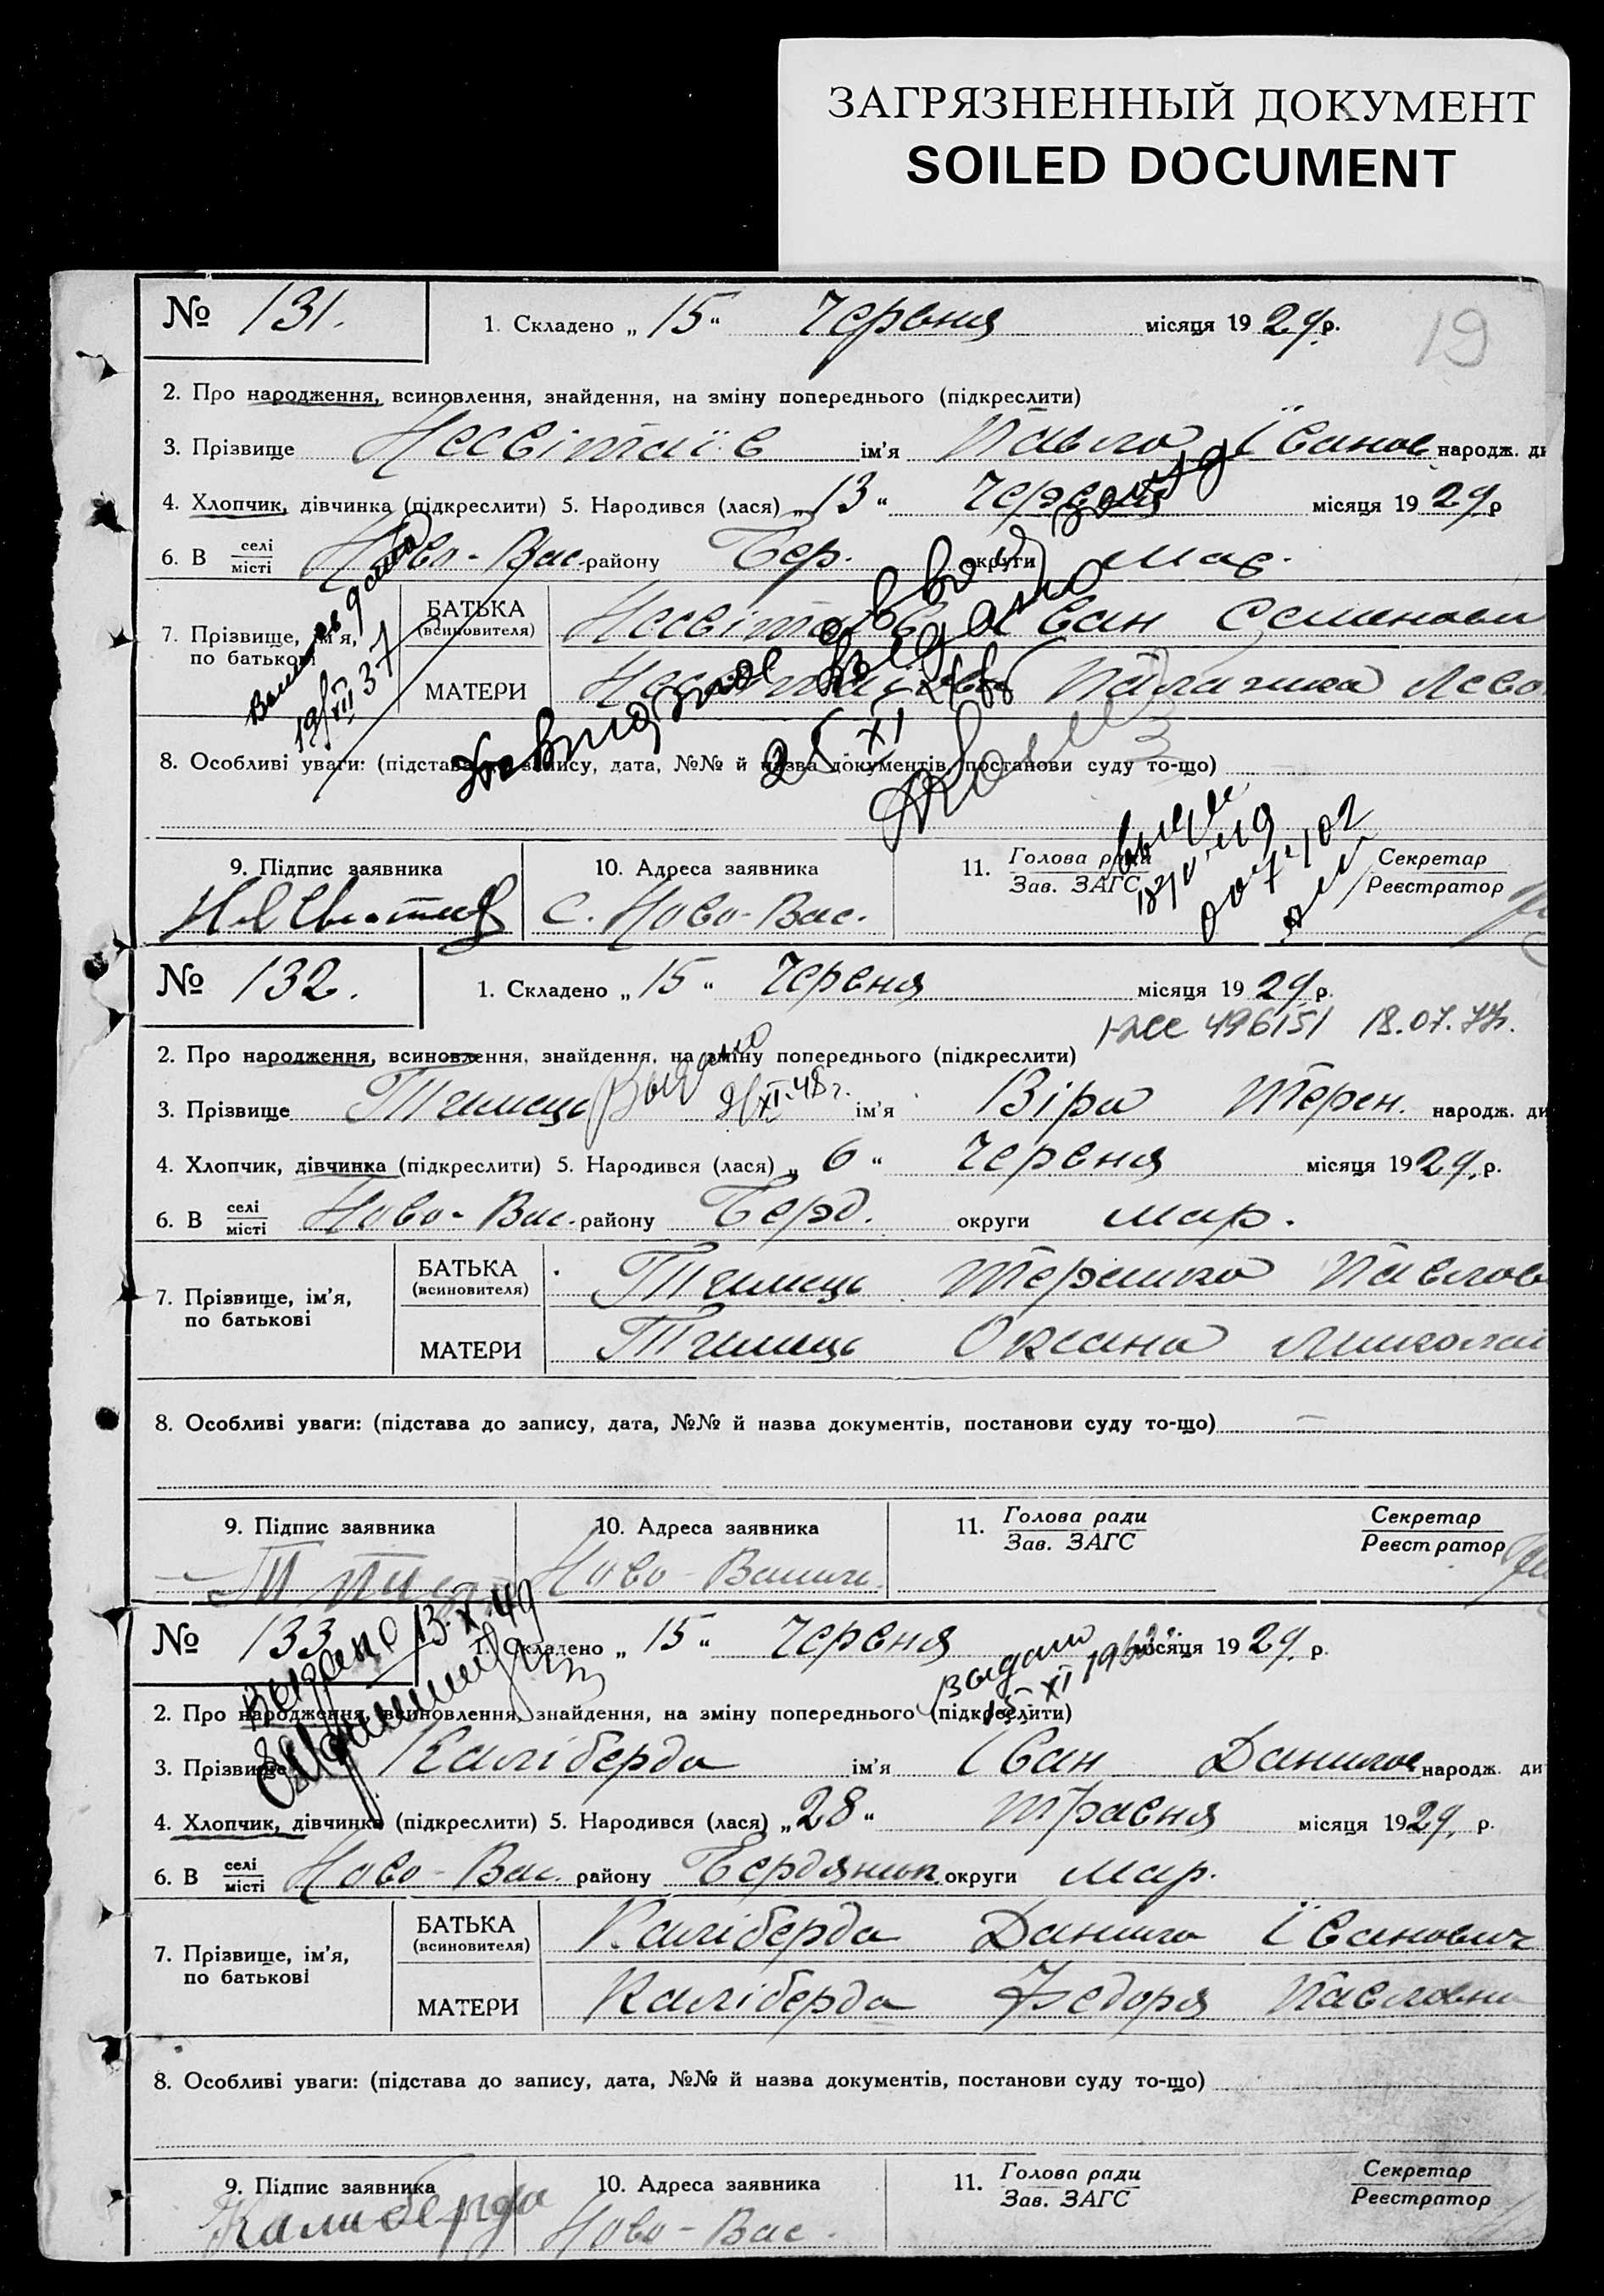 ЗАГРЯЗНЕННЫЙ ДОКУМЕНТ
SOILED DOCUMENT
19
№ 131.
1. Складено „ 15 “ Червня місяця 19 29 р.
2. Про народження, всиновлення, знайдення, на зміну попереднього (підкреслити)
3. Прізвище Несвітаїв ім'я Павло Їванов народж. ди
4. Хлопчик, дівчинка (підкреслити) 5. Народився (лася) „ 13 “ Червня місяця 19 29 р
6. В селі місті Ново-Вас. району Бер. округи Мар.
7. Прізвище, ім'я, по батькові
БАТЬКА (всиновителя) Несвітаїв Їван Семенови
МАТЕРИ
8. Особливі уваги: (підстава до запису, дата, №№ й назва документів, постанови суду то-що)
19/XII 37
выдано
25 XI
9. Підпис заявника
10. Адреса заявника
11. Голова ради Зав. ЗАГС
Секретар Реєстратор
С. Ново-Вас.
№ 132.
1. Складено „ 15 “ Червня місяця 19 29 р.
496151 18.07.77.
2. Про народження, всиновлення, знайдення, на зміну попереднього (підкреслити)
Выдано XI-48 г.
3. Прізвище ім'я Віра Терен. народж. ди
4. Хлопчик, дівчинка (підкреслити) 5. Народився (лася) „ 6 “ Червня місяця 19 29 р.
6. В селі місті Ново-Вас. району Берд. округи мар.
7. Прізвище, ім'я, по батькові
БАТЬКА (всиновителя) Терешко Павлов
МАТЕРИ Оксана Миколаи
8. Особливі уваги: (підстава до запису, дата, №№ й назва документів, постанови суду то-що) —
9. Підпис заявника
10. Адреса заявника
11. Голова ради Зав. ЗАГС
Секретар Реєстратор
Ново-
№ 133
Выдано 13.X.49
1. Складено „ 15 “ Червня місяця 19 29 р.
Выдано 15 XI
2. Про народження, всиновлення, знайдення, на зміну попереднього (підкреслити)
3. Прізвище Каліберда ім'я Їван Данилов народж. ди
4. Хлопчик, дівчинка (підкреслити) 5. Народився (лася) „ 28 “ травня місяця 19 29 р.
6. В селі місті Ново-Вас. району Бердянськ. округи мар.
7. Прізвище, ім'я, по батькові
БАТЬКА (всиновителя) Каліберда Данило Їванович
МАТЕРИ Каліберда Федоря Павловни
8. Особливі уваги: (підстава до запису, дата, №№ й назва документів, постанови суду то-що)
9. Підпис заявника
10. Адреса заявника
11. Голова ради Зав. ЗАГС
Секретар Реєстратор
Калиберда
Ново-Вас.